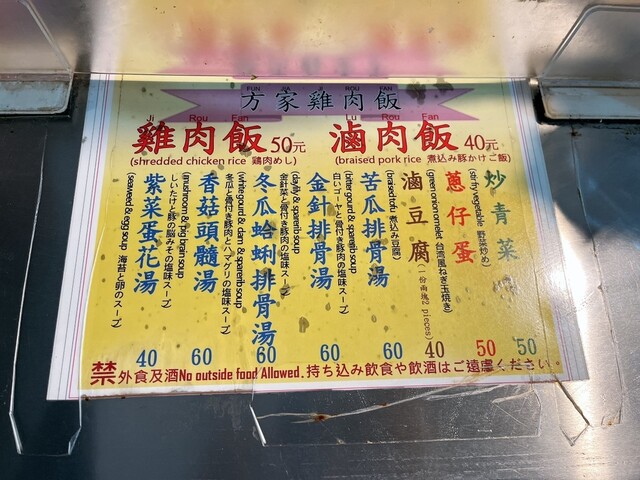 方家雞肉飯
Ji Rou Fan
雞肉飯 50元
(shredded chicken rice 鶏肉めし)
Lu Rou Fan
滷肉飯 40元
(braised pork rice 煮込み豚かけご飯)
炒青菜 50
(stir fry vegetable 野菜炒め)
蔥仔蛋 50
(green onion omelet 台湾風ねぎ玉焼き)
滷豆腐 40
(一份兩塊2 pieces)
(braised tofu 煮込み豆腐)
苦瓜排骨湯 60
(bitter gourd & sparerib soup
白いゴーヤと骨付き豚肉の塩味スープ)
金針排骨湯 60
(daylily & sparerib soup
金針菜と骨付き豚肉の塩味スープ)
冬瓜蛤蜊排骨湯 60
(white gourd & clam & sparerib soup
冬瓜と骨付き豚肉とハマグリの塩味スープ)
香菇頭髓湯 60
(mushroom & pig brain soup
しいたけと豚の脳みその塩味スープ)
紫菜蛋花湯 40
(seaweed & egg soup 海苔と卵のスープ)
禁外食及酒No outside food Allowed.持ち込み飲食や飲酒はご遠慮ください。